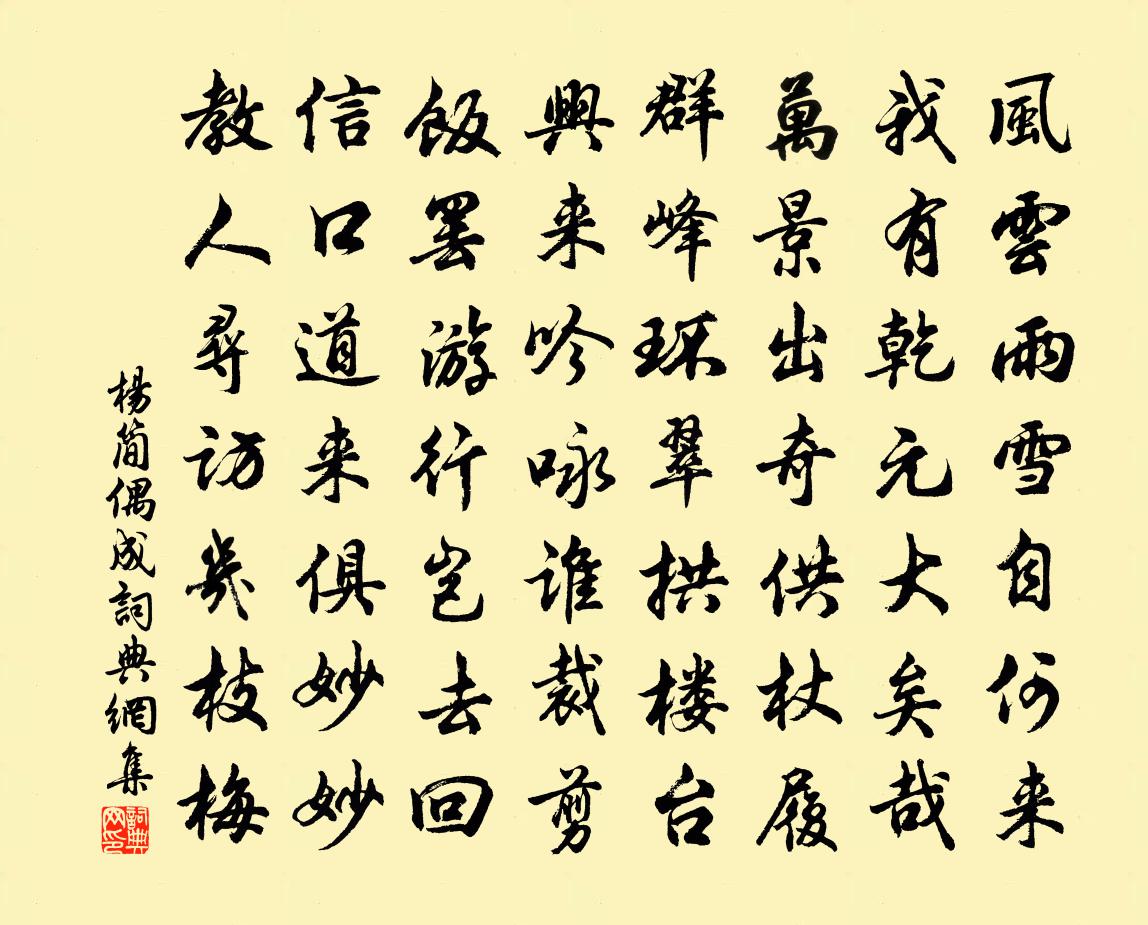 風雲雨雪自何来
我有乾元大矣哉
萬景出奇供杖履
群峰环翠拱楼台
興来吟咏誰裁剪
飯罢游行岂去回
信口道来俱妙妙
教人尋訪幾枝梅
楊简偶成詞典網集
詞典
网印